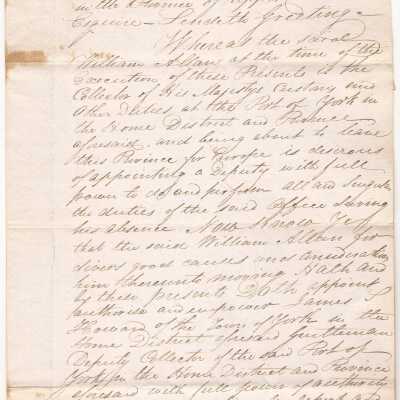 in the Province of Upper
Esquire - Sendeth Greeting -
Whereas the said
William Allan, at the time of the
execution of these Presents is the
Collector of His Majestys Customs and
other Duties at the Port of York in
the Home District and Province
aforesaid, and being about to leave
this Province for Europe is desirous
of appointing a Deputy with full
power to do and perform all and Singular
the duties of the said Office during
his absence Now Know Ye
that the said William Allan for
divers good causes and considerations
him thereunto moving Hath and
by these presents Doth appoint
authorise and empower James S
Howard of the Town of York in the
Home District aforesaid Gentleman
Deputy Collector of the said Port of
York in the Home District and Province
aforesaid with full power & authority